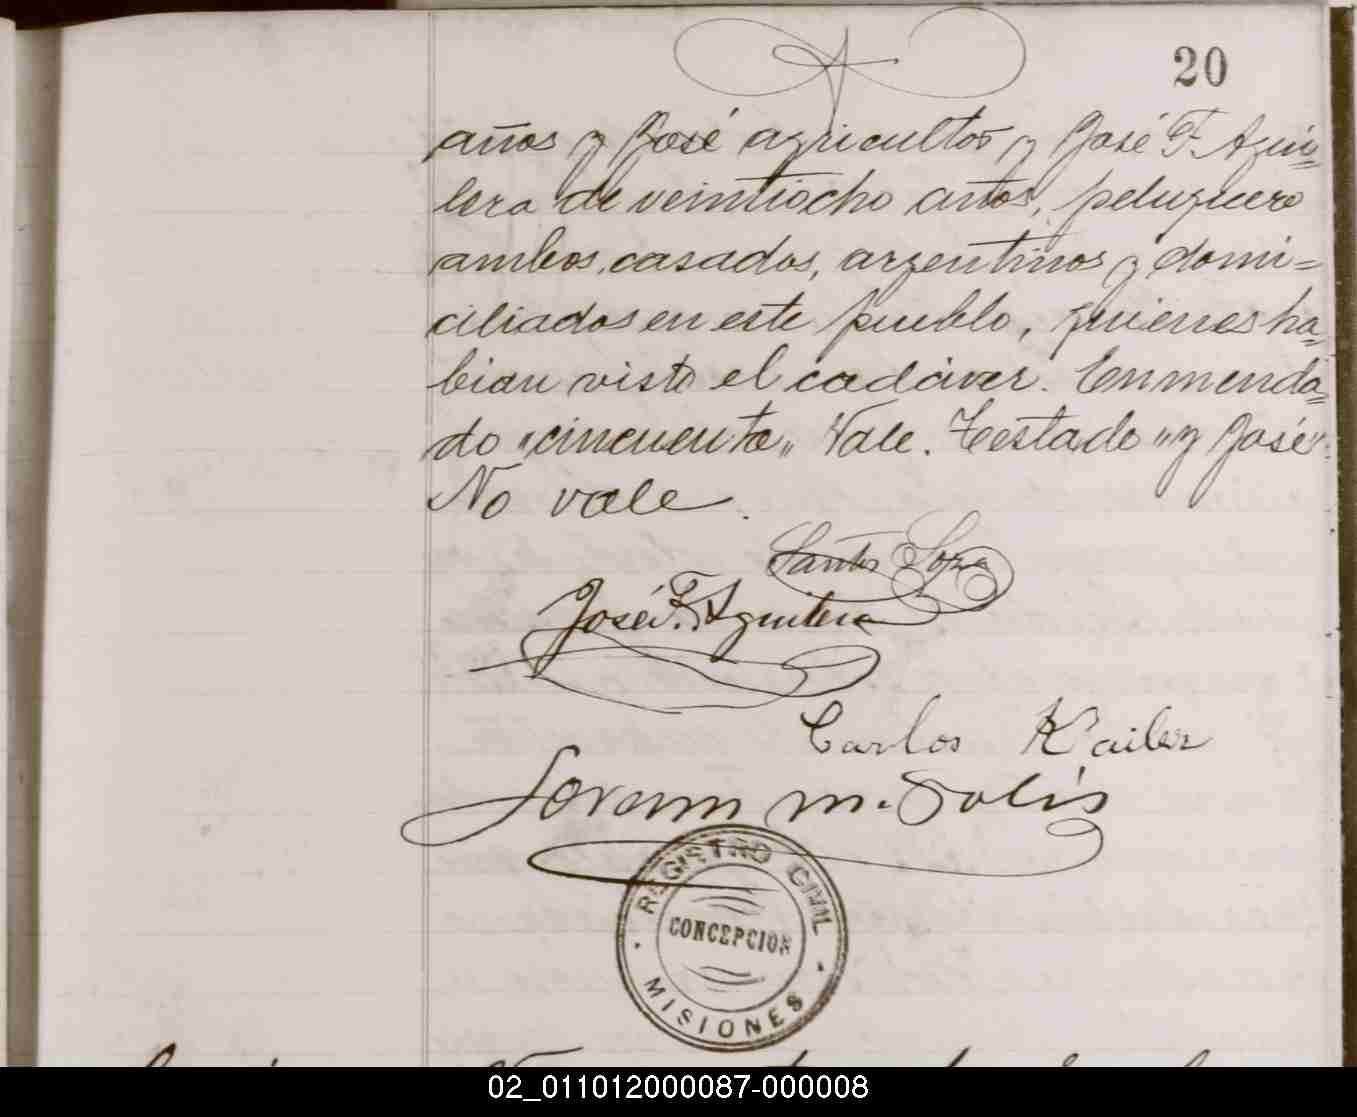 20
años y José agricultor y José F. Agui=
lera de veintiocho años, peluquero
ambos casados, argentinos y domi=
ciliados en este pueblo, quienes ha=
bian visto el cadáver. Enmenda=
do "cincuenta" Vale. Testado "y José".
No vale.
Santos
José F. Aguilera
Carlos
m. Solís
REGISTRO CIVIL
CONCEPCION
MISIONES
02_011012000087-000008